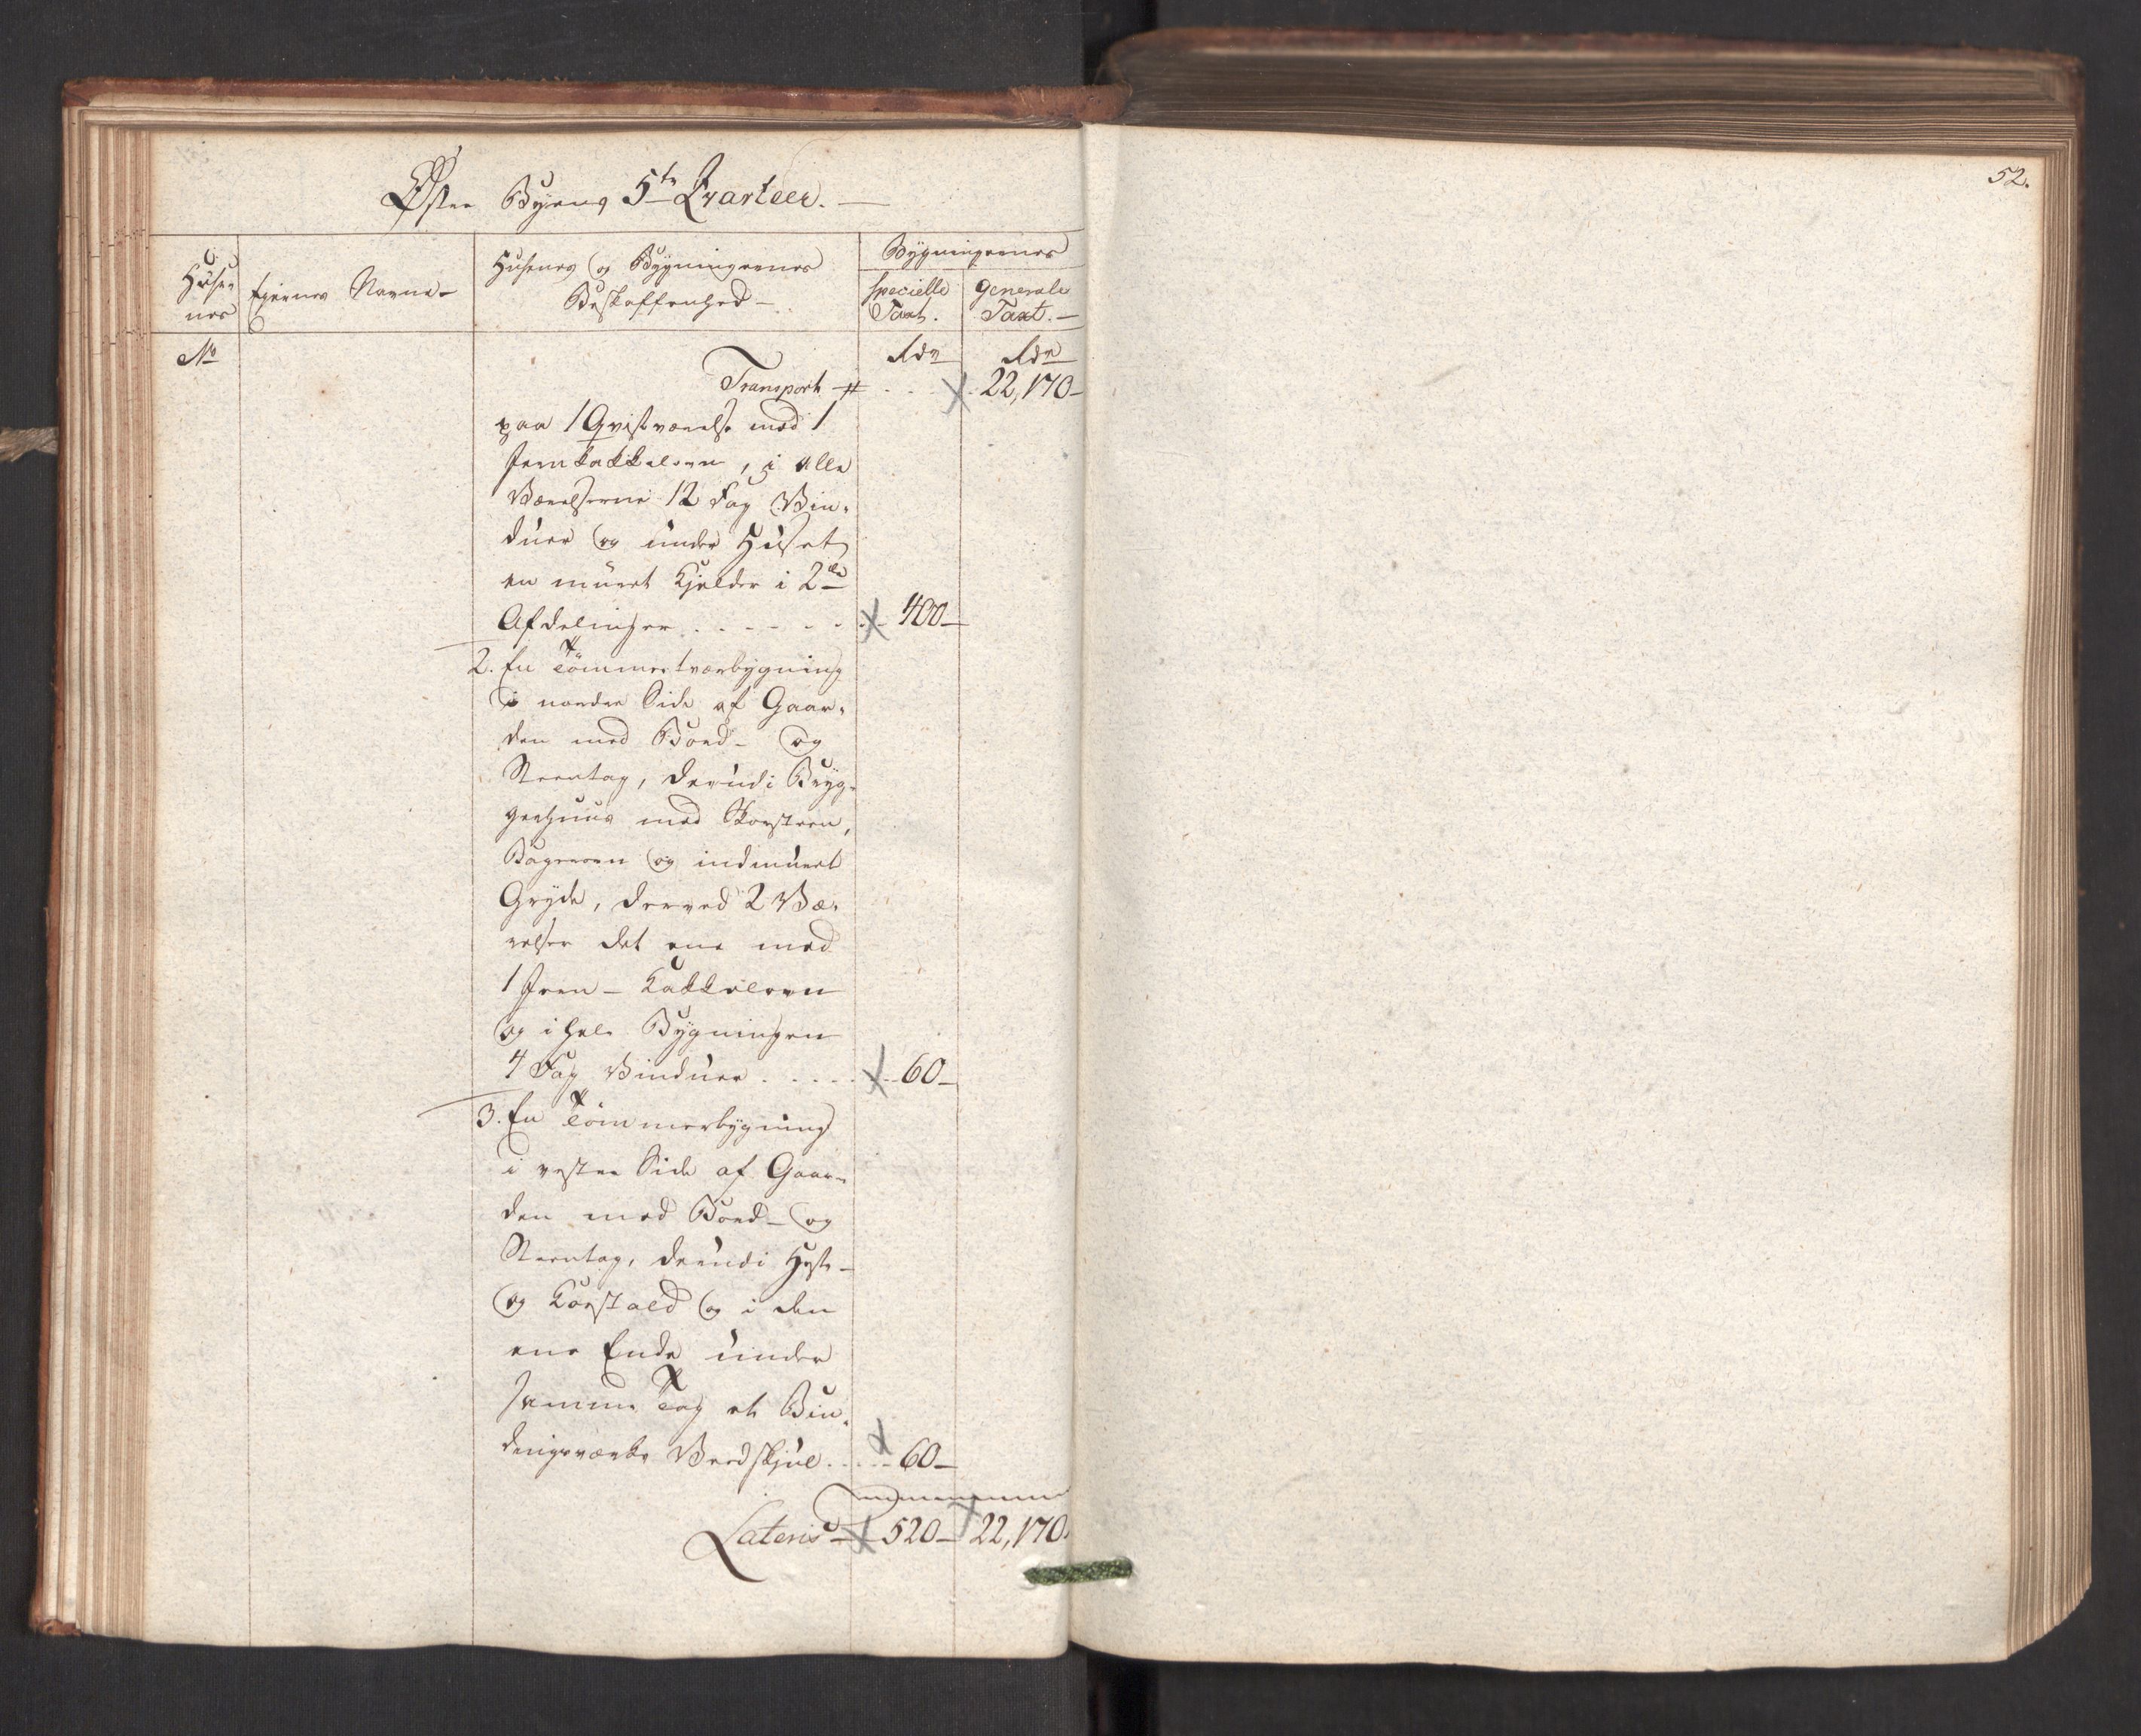 Øster Byens 5te Qvarteer.
Huse-
nes
Eiernes Navne
Husenes og Bygningernes
Beskaffenhed
Bygningernes
specielle
Taxt.
generale
Taxt.
No
Rdr
Rdr
Transport
22,170
paa 1 Qvistværelse med 1
Jernkakkelovn, i alle
Værelserne 12 Fag Vin-
duer og under Huset
en muret Kjelder i 2de
Afdelinger . . . . . . 400
2. En Tömmertværbygning
i nordre Side af Gaar-
den med Bord- og
Steentag, derudi Bryg-
gerhuus med Skorsteen,
Bagerovn og indmuret
Gryde, derved 2 Væ-
relser det ene med
1 Jern-Kakkelovn
og i hele Bygningen
4 Fag Vinduer . . . . . 60
3. En Tömmerbygning
i vestre Side af Gaar-
den med Bord- og
Steentag, derudi Heste-
og Koestald og i den
ene Ende under
samme Tag et Bin-
dingsværks Vedskjul . . . . 60
Lateris 520 22,170.
52.